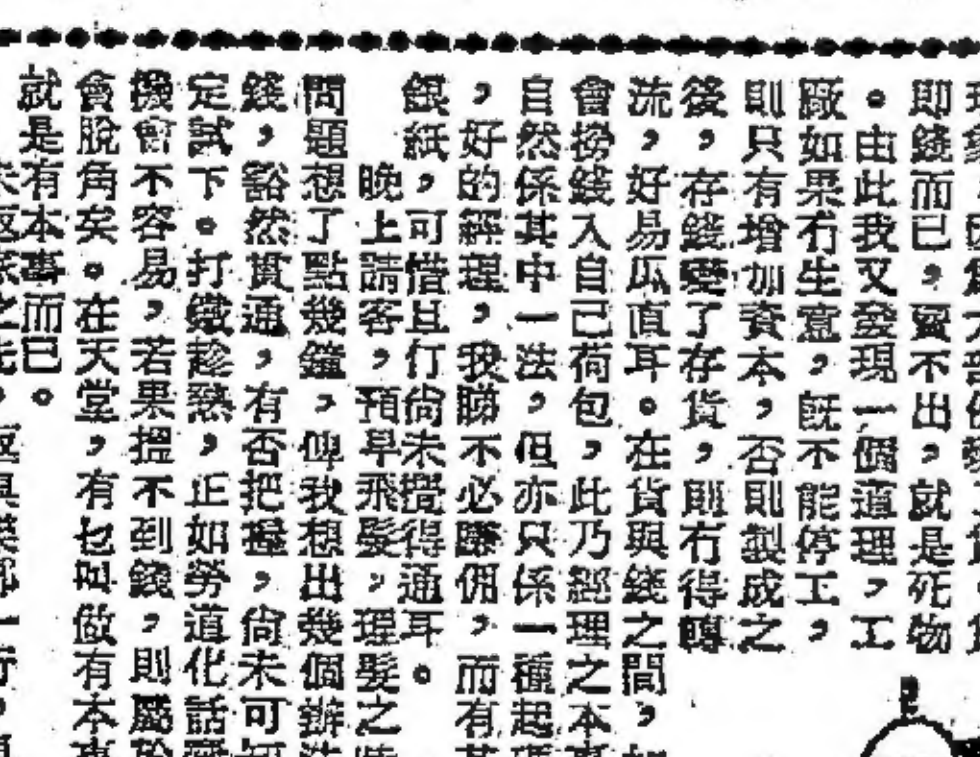 即錢而已，賣不出，就是死物
。由此我又發現一個道理，工
廠如果冇生意，旣不能停工，
則只有增加資本，否則製成之
後，存錢變了存貨，則冇得轉
流，好易瓜直耳。在貨與錢之間，
會撈錢入自己荷包，此乃經理之本事
自然係其中一法，但亦只係一種起碼
，好的經理，我睇不必賺佣，而有其
銀紙，可惜且仃尙未攪得通耳。
晚上請客，預早飛髮，理髮之時
問題想了點幾鐘，俾我想出幾個辦法
錢，豁然貫通，有否把握，尙未可知
定試下。打鐵趁熱，正如勞道化話齋
機會不容易，若果搵不到錢，則屬於
會脫角矣。在天堂，有乜叫做有本事
就是有本事而已。